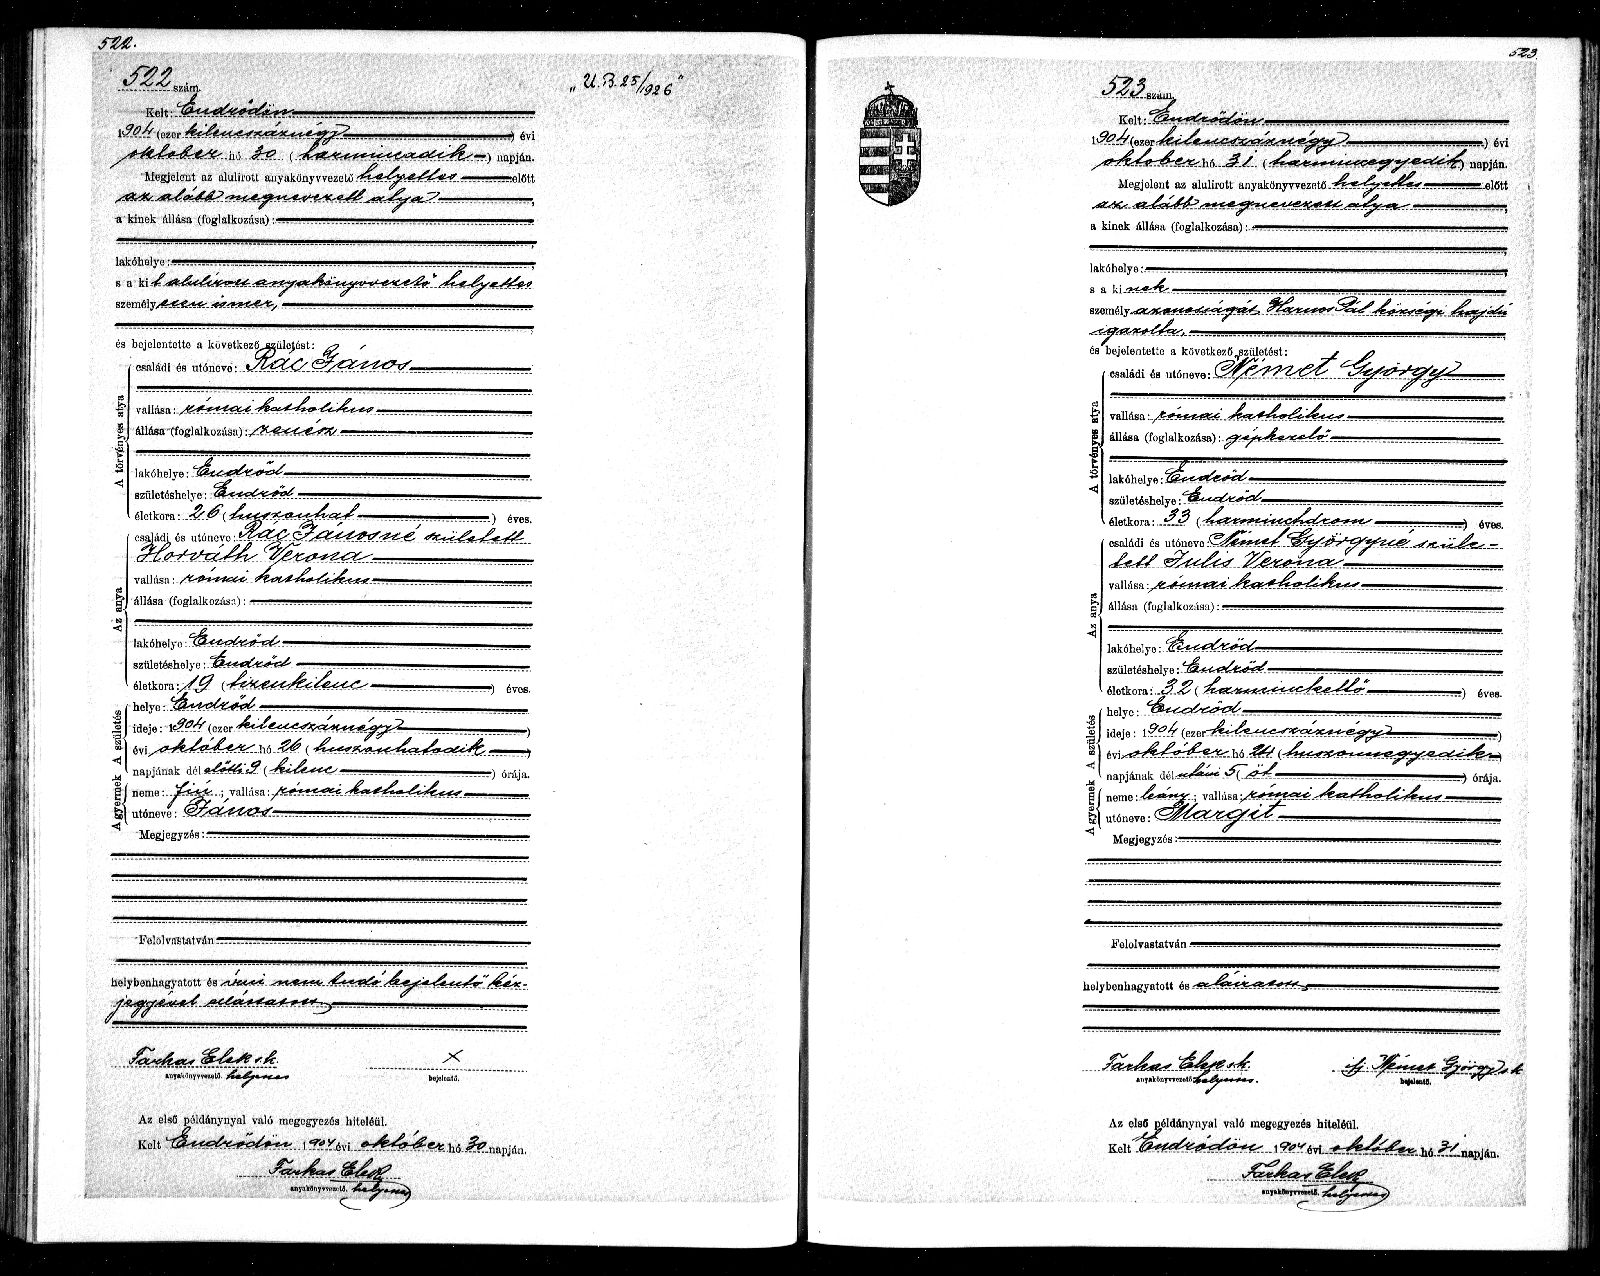 522.
522 szám.
„U. B. 25/1926"
Kelt: Endrődön
1904 (ezer kilencszáznégy) évi
október hó 30 (harmincadik) napján.
Megjelent az alulirott anyakönyvvezető helyettes előtt
az alább megnevezett atya,
a kinek állása (foglalkozása):
lakóhelye:
s a kit alulirott anyakönyvvezető helyettes
személyesen ismer,
és bejelentette a következő születést:
A törvényes atya
családi és utóneve: Rác János
vallása: római katholikus
állása (foglalkozása): zenész
lakóhelye: Endrőd
születéshelye: Endrőd
életkora: 26 (huszonhat) éves.
Az anya
családi és utóneve: Rác Jánosné született
Horváth Verona
vallása: római katholikus
állása (foglalkozása):
lakóhelye: Endrőd
születéshelye: Endrőd
életkora: 19 (tizenkilenc) éves.
A születés
helye: Endrőd
ideje: 1904 (ezer kilencszáznégy)
évi október hó 26 (huszonhatodik)
napjának dél előtti 9 (kilenc) órája.
A gyermek
neme: fiú; vallása: római katholikus
utóneve: János
Megjegyzés:
Felolvastatván
helybenhagyatott és írni nem tudó bejelentő kéz-
jegyével elláttatott,
Farkas Elek s.k.
anyakönyvvezető. helyettes
×
bejelentő.
Az első példánynyal való megegyezés hiteléül.
Kelt Endrődön 1904 évi október hó 30 napján.
Farkas Elek
anyakönyvvezető. helyettes
523
523 szám.
Kelt: Endrődön
1904 (ezer kilencszáznégy) évi
október hó 31 (harmincegyedik) napján.
Megjelent az alulirott anyakönyvvezető helyettes előtt
az alább megnevezett atya,
a kinek állása (foglalkozása):
lakóhelye:
s a kinek
személyazonosságát Harnos Pál községi hajdú
igazolta,
és bejelentette a következő születést:
A törvényes atya
családi és utóneve: Német György
vallása: római katholikus
állása (foglalkozása): gépkezelő
lakóhelye: Endrőd
születéshelye: Endrőd
életkora: 33 (harminchárom) éves.
Az anya
családi és utóneve: Német Györgyné szüle-
tett Iulis Verona
vallása: római katholikus
állása (foglalkozása):
lakóhelye: Endrőd
születéshelye: Endrőd
életkora: 32 (harminckettő) éves.
A születés
helye: Endrőd
ideje: 1904 (ezer kilencszáznégy)
évi október hó 24 (huszonnegyedik)
napjának dél utáni 5 (öt) órája.
A gyermek
neme: leány; vallása: római katholikus
utóneve: Margit
Megjegyzés:
Felolvastatván
helybenhagyatott és aláiratott,
Farkas Elek s.k.
anyakönyvvezető helyettes.
ifj. Német György s.k.
bejelentő.
Az első példánynyal való megegyezés hiteléül.
Kelt Endrődön 1904 évi október hó 31 napján.
Farkas Elek
anyakönyvvezető. helyettes